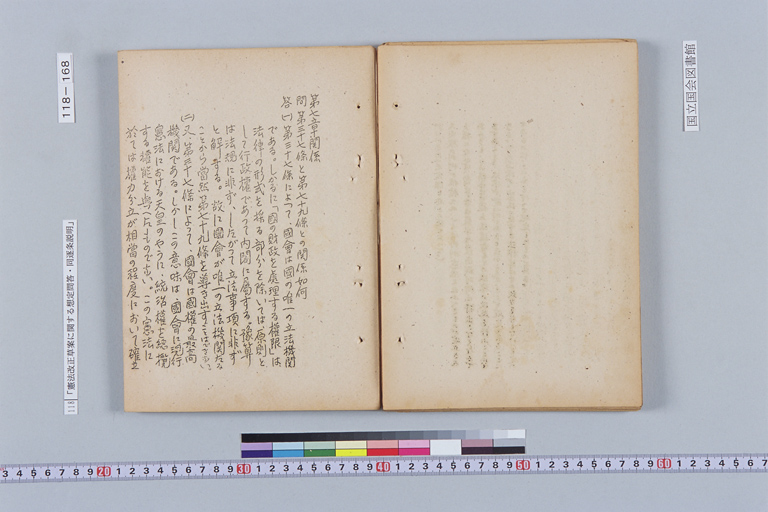 国立国会図書館
第七章関係
問 第三十七條と第七十九條との関係如何
答 (一)第三十七條によって、國會は國の唯一の立法機関
である。しかるに「國の財政を處理する権限」は
法律の形式を採る部分を除いては原則と
して行政權であって内閣に屬する。豫算
は法規に非ず、したがって立法事項に非ず
と解する。故に國會が唯一の立法機関たる
ことから當然第七十九條を導き出すことはできない
(二)又、第三十七條によって、國會は國權の最高
機関である。しかしこの意味は、國會に現行
憲法における天皇のやうに、統治權を總攬
する權能を與へたものでない。この憲法に
於ては權力分立が相當の程度において確立
118-168
118 「憲法改正草案に関する想定問答・同逐条説明」
3 4 5 6 7 8 9 20 1 2 3 4 5 6 7 8 9 30 1 2 3 4 5 6 7 8 9 40 1 2 3 4 5 6 7 8 9 50 1 2 3 4 5 6 7 8 9 60 1 2 3 4 5 6 7